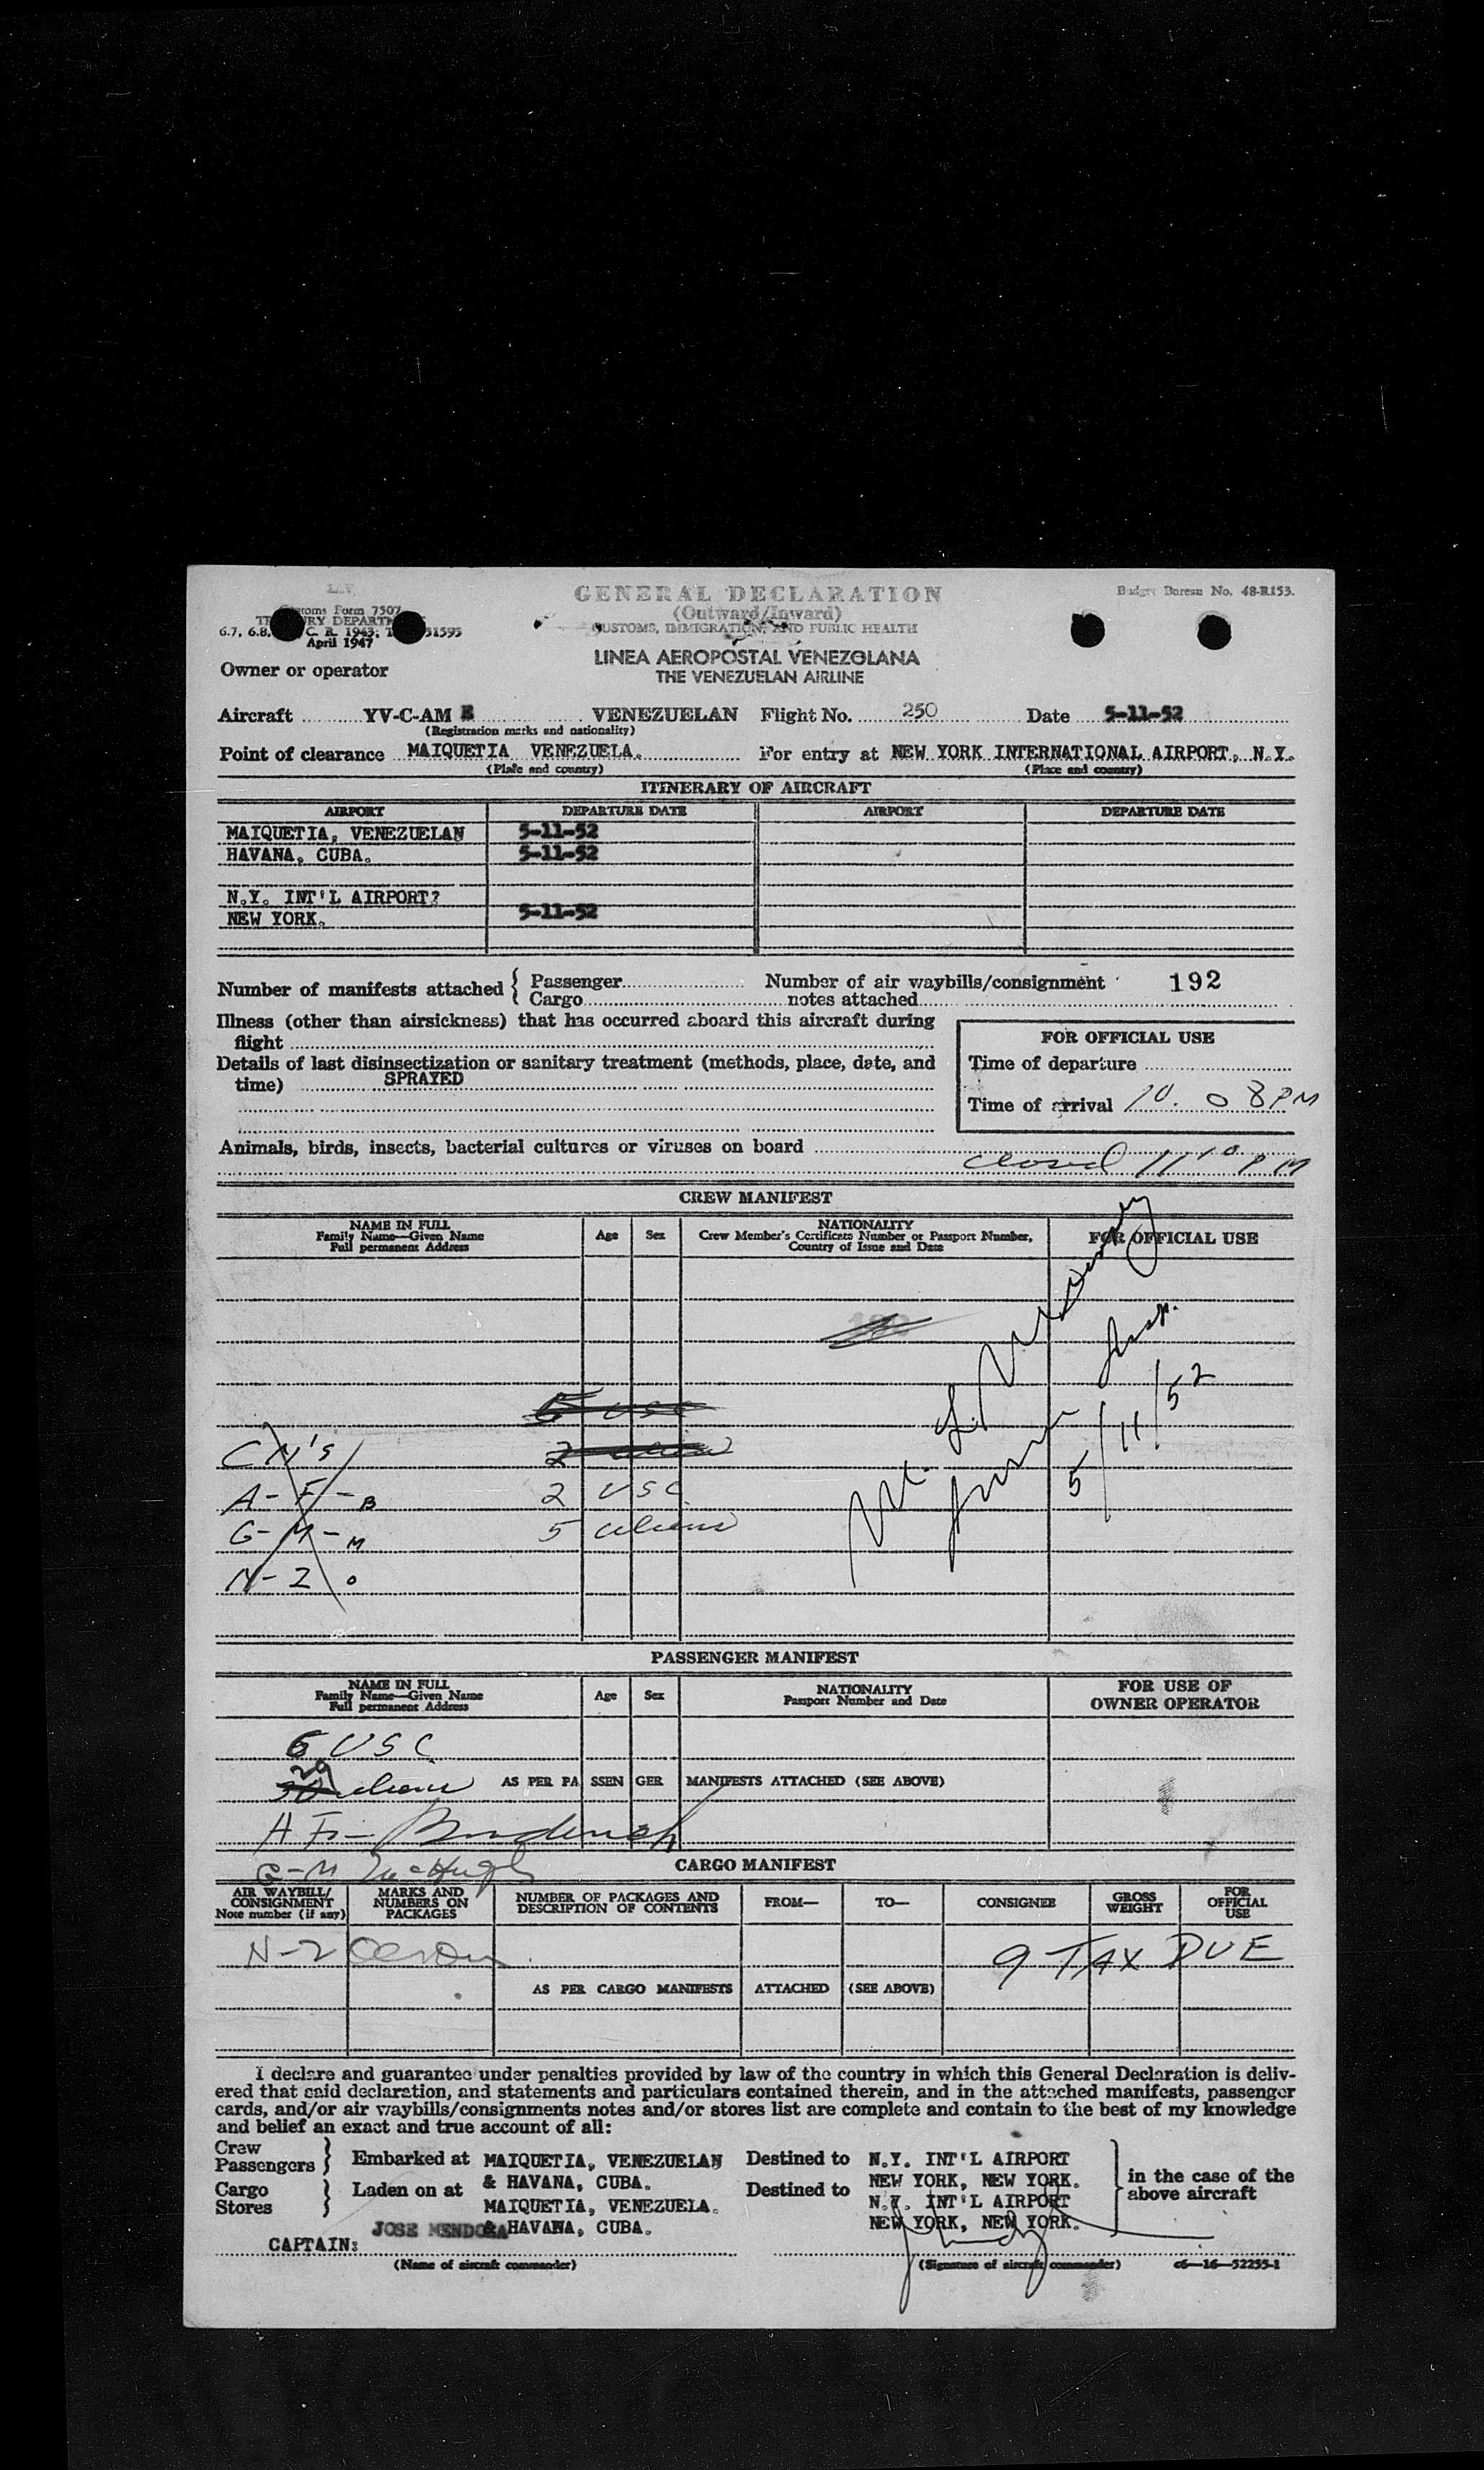 L.A.V.
GENERAL DECLARATION
Budget Bureau No. 48-R153.
(Outward/Inward)
Customs Form 7507
TREASURY DEPARTMENT
CUSTOMS, IMMIGRATION, AND PUBLIC HEALTH
6.7, 6.8, C. R. 1943; T. 51595
April 1947
LINEA AEROPOSTAL VENEZOLANA
THE VENEZUELAN AIRLINE
Owner or operator
Aircraft YV-C-AM VENEZUELAN Flight No. 250 Date 5-11-52
(Registration marks and nationality)
Point of clearance MAIQUETIA VENEZUELA. For entry at NEW YORK INTERNATIONAL AIRPORT, N.Y.
(Place and country) (Place and country)
ITINERARY OF AIRCRAFT
AIRPORT DEPARTURE DATE AIRPORT DEPARTURE DATE
MAIQUETIA, VENEZUELAN 5-11-52
HAVANA, CUBA. 5-11-52
N.Y. INT'L AIRPORT?
NEW YORK. 5-11-52
Number of manifests attached { Passenger
Cargo
Number of air waybills/consignment
notes attached
192
Illness (other than airsickness) that has occurred aboard this aircraft during
flight
Details of last disinsectization or sanitary treatment (methods, place, date, and
time) SPRAYED
FOR OFFICIAL USE
Time of departure
Time of arrival 10.08 PM
Animals, birds, insects, bacterial cultures or viruses on board
closed 11 10 PM
CREW MANIFEST
NAME IN FULL
Family Name—Given Name
Full permanent Address
Age Sex
NATIONALITY
Crew Member's Certificate Number or Passport Number,
Country of Issue and Date
FOR OFFICIAL USE
5 USC
CN's 2 aliens
A-F-B 2 USC
G-M-M 5 aliens
N-Z O
Insp.
5/11/52
PASSENGER MANIFEST
NAME IN FULL
Family Name—Given Name
Full permanent Address
Age Sex
NATIONALITY
Passport Number and Date
FOR USE OF
OWNER OPERATOR
6 USC
29
30 aliens AS PER PASSENGER MANIFESTS ATTACHED (SEE ABOVE)
A F-
G-M McHugh
CARGO MANIFEST
AIR WAYBILL/
CONSIGNMENT
Note number (if any)
MARKS AND
NUMBERS ON
PACKAGES
NUMBER OF PACKAGES AND
DESCRIPTION OF CONTENTS
FROM— TO— CONSIGNEE
GROSS
WEIGHT
FOR
OFFICIAL
USE
N-Z
9 TAX DUE
AS PER CARGO MANIFESTS ATTACHED (SEE ABOVE)
I declare and guarantee under penalties provided by law of the country in which this General Declaration is deliv-
ered that said declaration, and statements and particulars contained therein, and in the attached manifests, passenger
cards, and/or air waybills/consignments notes and/or stores list are complete and contain to the best of my knowledge
and belief an exact and true account of all:
Crew
Passengers } Embarked at MAIQUETIA, VENEZUELAN
& HAVANA, CUBA.
Destined to N.Y. INT'L AIRPORT
NEW YORK, NEW YORK.
Cargo
Stores } Laden on at MAIQUETIA, VENEZUELA.
& HAVANA, CUBA.
Destined to N.Y. INT'L AIRPORT
NEW YORK, NEW YORK.
in the case of the
above aircraft
CAPTAIN: JOSE MENDOZA
(Name of aircraft commander) (Signature of aircraft commander) c6—16—52255-1